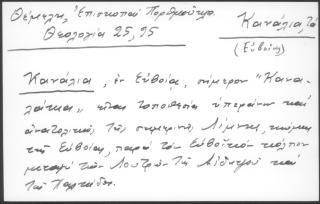 Θέμελη, Ἐπισκοπαὶ Πορθμοῦ κτλ.
Θεολογία 25, 95
Κανάλια, τὰ
(Εὐβοίας)
Κανάλια, ἐν Εὐβοίᾳ, σήμερον "Κανα-
λάκια" εἶναι τοποθεσία ὑπεράνω καὶ
ἀνατολικὰ τῆς σημερινῆς Λίμνης, κώμης
τῆς Εὐβοίας, παρὰ τὸν Εὐβοϊκὸν κόλπον
μεταξὺ τῶν Λουτρῶν τῆς Αἰδηψοῦ καὶ
τῆς